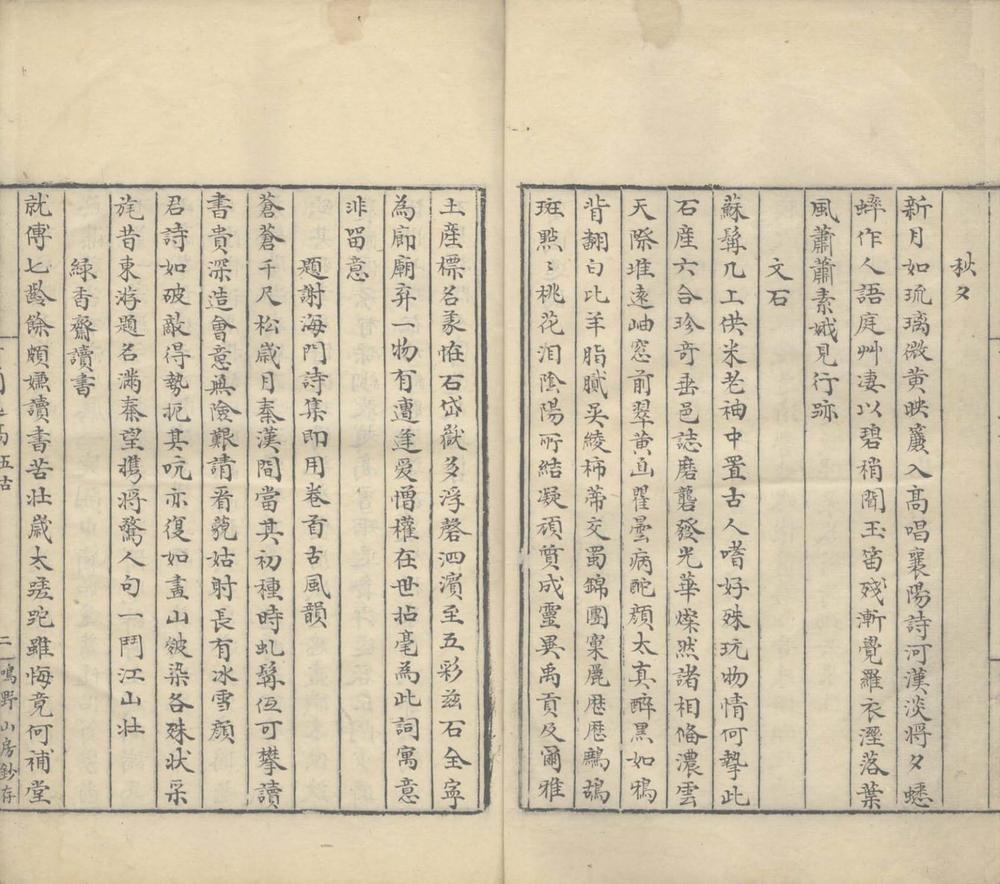 秋夕
新月如琉璃微黄映簾入高唱襄陽詩河漢淡將夕蟋
蟀作人語庭艸凄以碧稍聞玉笛殘漸覺羅衣溼落葉
風蕭蕭素娥見行跡
文石
蘇髯几上供米老袖中置古人嗜好殊玩物情何摯此
石産六合珍奇垂邑誌磨礱發光華燦然諸相俻濃雲
天際堆遠岫窓前翠黄直瞿曇病酡顔太真醉黒如鴉
背翻白比羊脂膩吴綾柿蒂交蜀錦團窠麗歴歴鷓鴣
斑㸃〻桃花泪陰陽所結凝頑質成靈異禹貢及爾雅
土産標名彖恠石岱嶽多浮磬泗濱至五彩兹石全寜
為廊廟弃一物有遭逢愛憎權在世拈毫為此詞寓意
非畱意
題謝海門詩集即用卷首古風韻
蒼蒼千尺松歲月秦漢間當其初種時虬髯伍可攀讀
書貴深造會意無險艱請看藐姑射長有冰雪顔
君詩如破敵得勢扼其吭亦復如畫山皴染各殊狀采
旄昔東游題名滿秦望携將驚人句一鬥江山壯
緑香齋讀書
就傅七齡餘頗嫌讀書苦壮歲太蹉跎雖悔竟何補堂
五古
二
鳴野山房鈔存